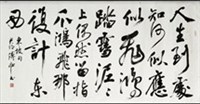 人生到處
知何似應
似飛鴻
踏雪泥泥
上偶然留指
爪鴻飛那
復計東
西
東坡句